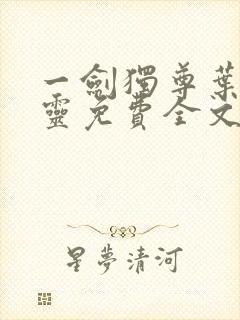 一劍獨尊葉
靈免費全文
星夢清河